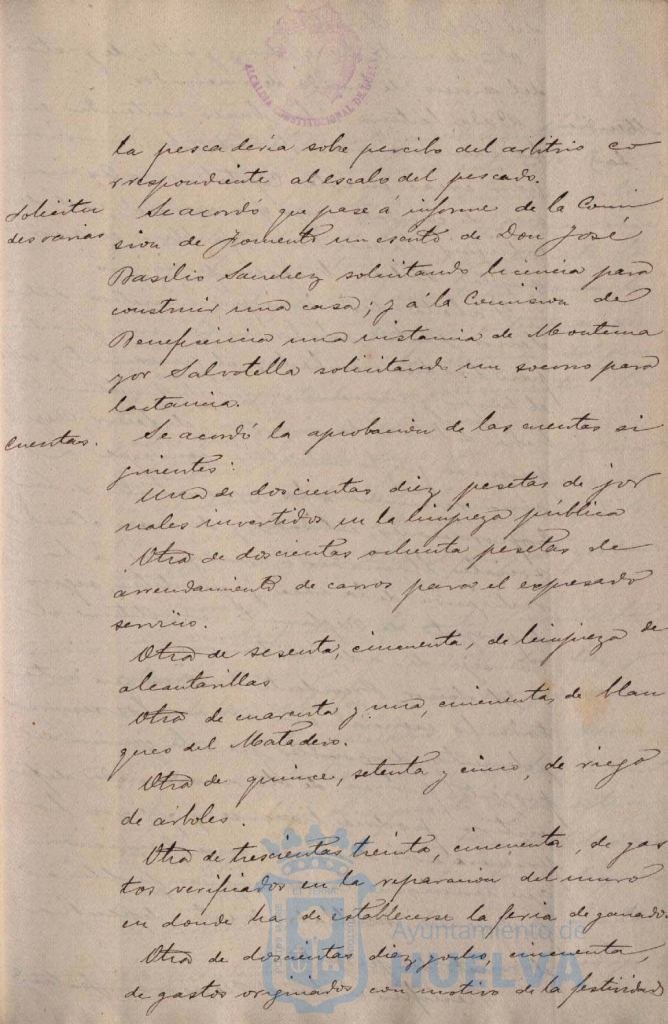 ALCALDIA CONSTITUCIONAL DE HUELVA
la pescaderia sobre percibo del arbitrio co
rrespondiente al escalo del pescado.
Solicitu
des varias
Se acordó que pase á informe de la Comi
sion de Fomento un escrito de Don José
Basilio Sanchez solicitando licencia para
construir una casa; y á la Comision de
Beneficencia una instancia de Montema
yor Salvatella solicitando un socorro para
lactancia.
Cuentas.
Se acordó la aprobacion de las cuentas si
guientes:
Una de doscientas diez pesetas de jor
nales invertidos en la limpieza pública
Otra de doscientas ochenta pesetas de
arrendamiento de carros para el expresado
servicio.
Otra de sesenta, cincuenta, de limpieza de
alcantarillas
Otra de cuarenta y una, cincuenta, de blan
queo del Matadero.
Otra de quince, setenta y cinco, de riego
de árboles.
Otra de trescientas treinta, cincuenta, de gas
tos verificados en la reparacion del muro
en donde ha de establecerse la feria de ganados
Otra de doscientas diez y ocho, cincuenta,
de gastos originados con motivo de la festividad
Ayuntamiento de
HUELVA